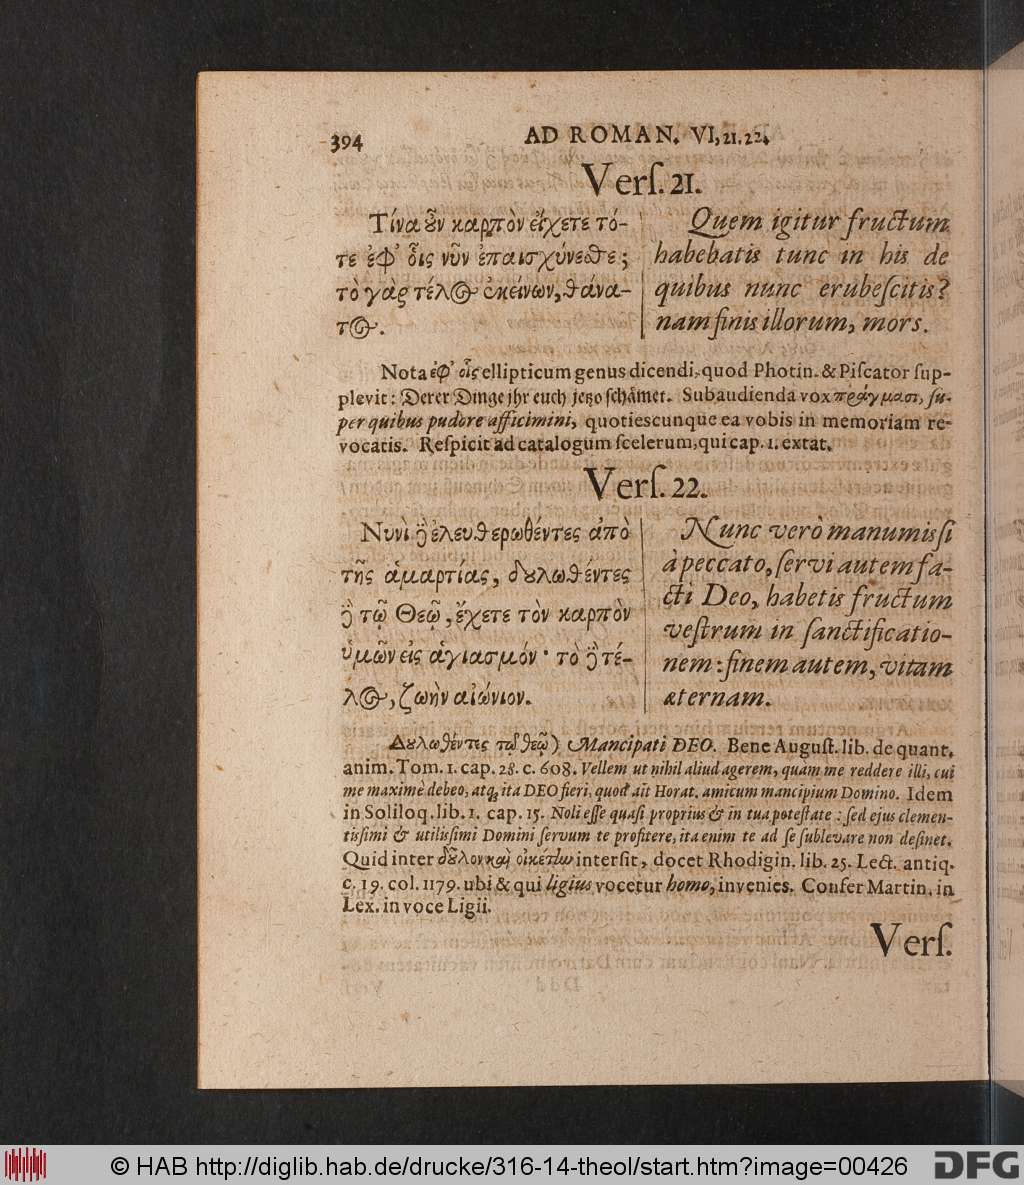 394 AD ROMAN. VI, 21. 22.
Verſ. 21.
Τίνα ȣ̓͂ν καρπὸν εἴχετε τό-
τε ἐφ᾽ οἷς νῦν ἐπαισχύνεσθε;
τὸ γὰρ τέλος ἐκείνων, θάνα-
τος.
Quem igitur fructum
habebatis tunc in his de
quibus nunc erubeſcitis?
nam finis illorum, mors.
Nota ἐφ᾽ οἷς ellipticum genus dicendi, quod Photin. & Piſcator ſup-
plevit: Derer Dinge jhr euch jetzo ſchämet. Subaudienda vox πράγμασι, ſu-
per quibus pudore afficimini, quotiescunque ea vobis in memoriam re-
vocatis. Reſpicit ad catalogum ſcelerum, qui cap. 1. extat.
Verſ. 22.
Νυνὶ δὲ ἐλευθερωθέντες ἀπὸ
τῆς ἁμαρτίας, δȣλωθέντες
δὲ τῷ Θεῷ, ἔχετε τὸν καρπὸν
ὑμῶν εἰς ἁγιασμόν· τὸ δὲ τέ-
λος, ζωὴν αἰώνιον.
Nunc verò manumissi
à peccato, ſervi autem fa-
cti Deo, habetis fructum
veſtrum in ſanctificatio-
nem: finem autem, vitam
æternam.
Δȣλωθέντες τῷ θεῷ) Mancipati DEO. Bene Auguſt. lib. de quant.
anim. Tom. 1. cap. 28. c. 608. Vellem ut nihil aliud agerem, quam me reddere illi, cui
me maximè debeo, atq; ita DEO fieri, quod ait Horat. amicum mancipium Domino. Idem
in Soliloq. lib. 1. cap. 15. Noli eſſe quaſi proprius & in tua poteſtate: ſed ejus clemen-
tisſimi & utilisſimi Domini ſervum te profitere, ita enim te ad ſe ſublevare non deſinet.
Quid inter δȣ͂λον καὶ οἰκέτην interſit, docet Rhodigin. lib. 25. Lect. antiq.
c. 19. col. 1179. ubi & qui ligius vocetur homo, invenies. Confer Martin. in
Lex. in voce Ligii.
Verſ.
© HAB http://diglib.hab.de/drucke/316-14-theol/start.htm?image=00426
DFG